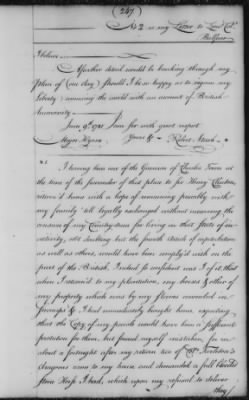 (247)
No 2 in my Letter to Lord Col.
Balfour
I believe
A further detail would be breaking through my
plan of one day Should I be so happy as to regain my
Liberty amusing the world with an account of British
Humanity.
June 9th 1781 I am for with great respect
Major Hyrne Yours &c Robert
No. 1
I having been one of the Garrison of Charles Town at
the time of the surrender of that place to Sir Henry Clinton
return'd home with a hope of remaining peaceably with
my family 'till legally exchanged without incurring the
censure of my Countrymen for living in that state of in-
activity, not doubting but the fourth Article of capitulation
as well as others, would have been comply'd with on the
part of the British, Indeed so confident was I of it, that
when I return'd to my plantation, my horses & other of
my property which were by my slaves concealed in
Swamps &c I had immediately brought home, expecting
that the Copy of my parole would have been a sufficient
protection for them, but found myself mistaken, for in
about a fortnight after my return two of Col. Tarleton's
dragoons came to my house and demanded a full blooded
Stone Horse I had, which upon my refusal to deliver
they